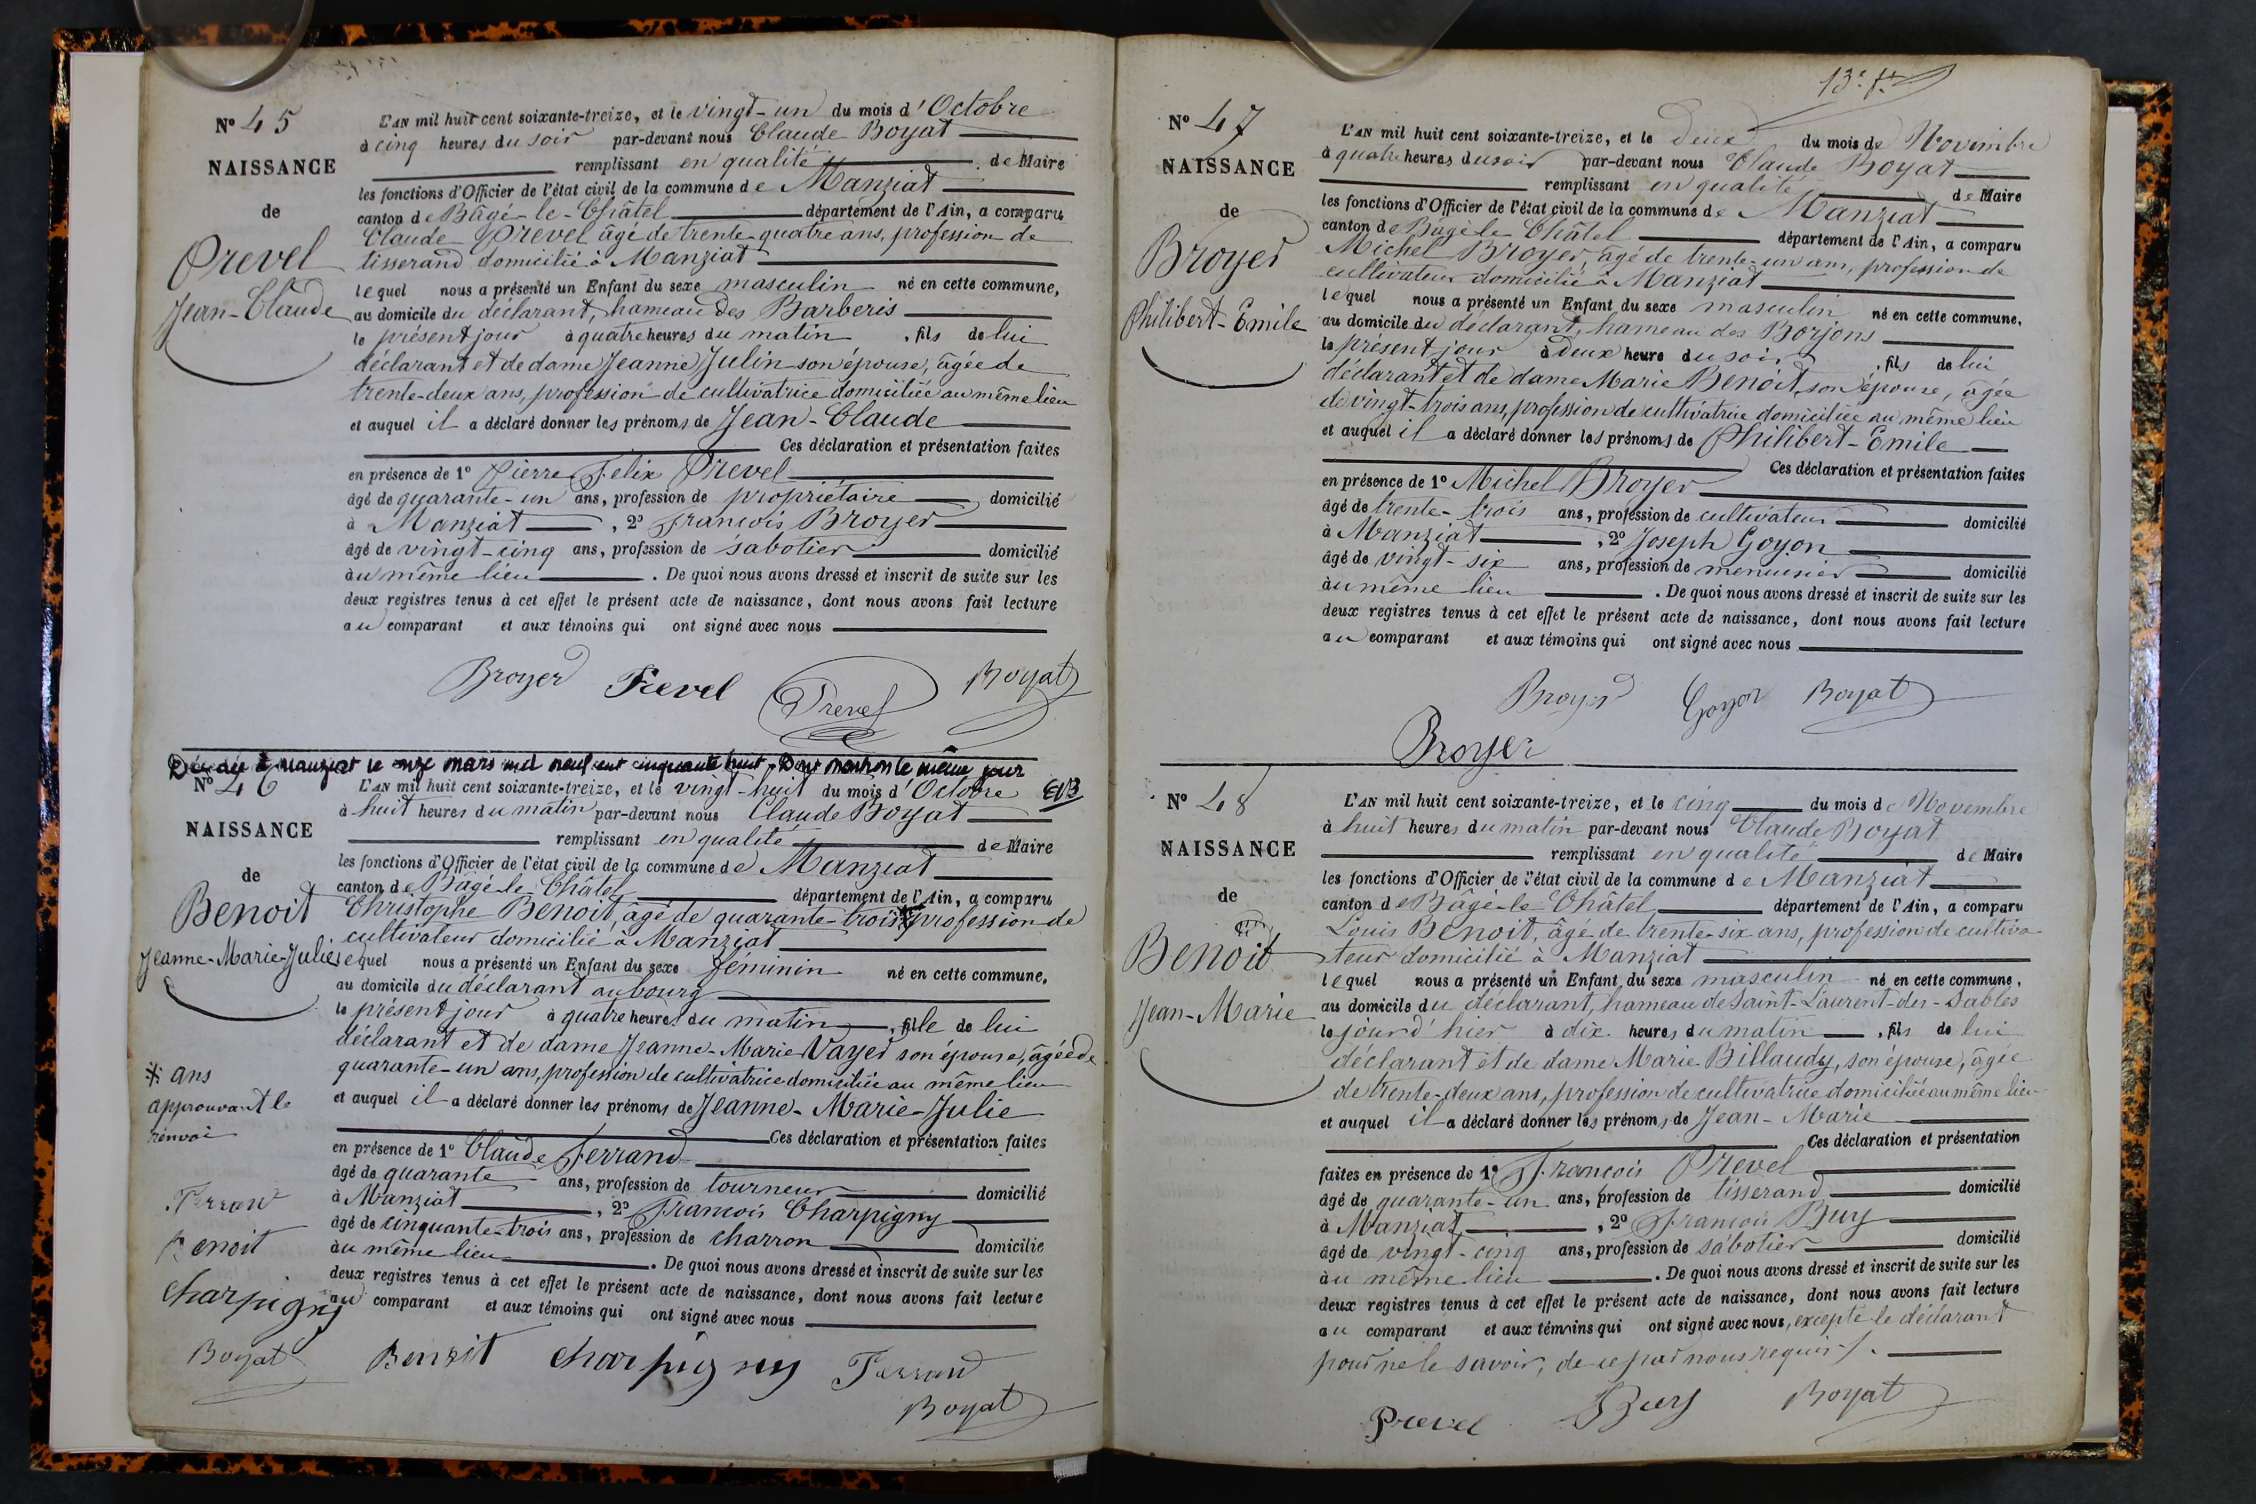 N° 45
NAISSANCE
de
Prevel
Jean-Claude
L'AN mil huit cent soixante-treize, et le vingt-un du mois d'Octobre
à cinq heures du soir par-devant nous Claude Boyat
remplissant en qualité de Maire
les fonctions d'Officier de l'état civil de la commune de Manziat
canton de Bâgé-le-Châtel département de l'Ain, a comparu
Claude Prevel âgé de trente-quatre ans, profession de
tisserand domicilié à Manziat
lequel nous a présenté un Enfant du sexe masculin né en cette commune,
au domicile du déclarant, hameau des Barberis
le présent jour à quatre heures du matin, fils de lui
déclarant et de dame Jeanne Julin son épouse, âgée de
trente-deux ans, profession de cultivatrice domiciliée au même lieu
et auquel il a déclaré donner les prénoms de Jean-Claude
Ces déclaration et présentation faites
en présence de 1° Pierre Felix Prevel
âgé de quarante-un ans, profession de propriétaire domicilié
à Manziat, 2° François Broyer
âgé de vingt-cinq ans, profession de sabotier domicilié
àu même lieu. De quoi nous avons dressé et inscrit de suite sur les
deux registres tenus à cet effet le présent acte de naissance, dont nous avons fait lecture
au comparant et aux témoins qui ont signé avec nous
Broyer Prevel Prevel Boyat
Décédée à Manziat le onze mars mil neuf cent cinquante huit. Dont mention le même jour
EB
N° 46
NAISSANCE
de
Benoit
Jeanne-Marie-Julie
L'AN mil huit cent soixante-treize, et le vingt-huit du mois d'Octobre
à huit heures du matin par-devant nous Claude Boyat
remplissant en qualité de Maire
les fonctions d'Officier de l'état civil de la commune de Manziat
canton de Bâgé-le-Châtel département de l'Ain, a comparu
Christophe Benoit, âgé de quarante-trois * profession de
cultivateur domicilié à Manziat
lequel nous a présenté un Enfant du sexe féminin né en cette commune,
au domicile du déclarant au bourg
le présent jour à quatre heures du matin, fille de lui
déclarant et de dame Jeanne-Marie Vayer son épouse, âgée de
quarante-un ans, profession de cultivatrice domiciliée au même lieu
et auquel il a déclaré donner les prénoms de Jeanne-Marie-Julie
Ces déclaration et présentation faites
en présence de 1° Claude Ferrand
âgé de quarante ans, profession de tourneur domicilié
à Manziat, 2° François Charpigny
âgé de cinquante-trois ans, profession de charron domicilié
àu même lieu. De quoi nous avons dressé et inscrit de suite sur les
deux registres tenus à cet effet le présent acte de naissance, dont nous avons fait lecture
au comparant et aux témoins qui ont signé avec nous
* ans
approuvant le
renvoi
Ferrand
Benoit
Charpigny
Boyat
Benoit Charpigny Ferrand
Boyat
13e ft
N° 47
NAISSANCE
de
Broyer
Philibert-Emile
L'AN mil huit cent soixante-treize, et le deux du mois de Novembre
à quatre heures du soir par-devant nous Claude Boyat
remplissant en qualité de Maire
les fonctions d'Officier de l'état civil de la commune de Manziat
canton de Bâgé-le-Châtel département de l'Ain, a comparu
Michel Broyer, âgé de trente-un ans, profession de
cultivateur domicilié à Manziat
lequel nous a présenté un Enfant du sexe masculin né en cette commune,
au domicile du déclarant, hameau des Borjons
le présent jour à deux heure du soir, fils de lui
déclarant et de dame Marie Benoit, son épouse, âgée
de vingt-trois ans, profession de cultivatrice domiciliée au même lieu
et auquel il a déclaré donner les prénoms de Philibert-Emile
Ces déclaration et présentation faites
en présence de 1° Michel Broyer
âgé de trente-trois ans, profession de cultivateur domicilié
à Manziat, 2° Joseph Goyon
âgé de vingt-six ans, profession de menuisier domicilié
àu même lieu. De quoi nous avons dressé et inscrit de suite sur les
deux registres tenus à cet effet le présent acte de naissance, dont nous avons fait lecture
au comparant et aux témoins qui ont signé avec nous
Broyer Goyon Boyat
Broyer
N° 48
NAISSANCE
de
Benoit
Jean-Marie
L'AN mil huit cent soixante-treize, et le cinq du mois de Novembre
à huit heures du matin par-devant nous Claude Boyat
remplissant en qualité de Maire
les fonctions d'Officier de l'état civil de la commune de Manziat
canton de Bâgé-le-Châtel département de l'Ain, a comparu
Louis Benoit, âge de trente-six ans, profession de cultiva-
teur domicilié à Manziat
lequel nous a présenté un Enfant du sexe masculin né en cette commune,
au domicile du déclarant, hameau de Saint-Laurent-des-Sables
le jour d'hier à dix heures du matin, fils de lui
déclarant et de dame Marie Billaudy, son épouse, âgée
de trente-deux ans, profession de cultivatrice domiciliée au même lieu
et auquel il a déclaré donner les prénoms de Jean-Marie
Ces déclaration et présentation
faites en présence de 1° François Prevel
âgé de quarante-un ans, profession de tisserand domicilié
à Manziat, 2° François Buy
âgé de vingt-cinq ans, profession de sabotier domicilié
àu même lieu. De quoi nous avons dressé et inscrit de suite sur les
deux registres tenus à cet effet le présent acte de naissance, dont nous avons fait lecture
au comparant et aux témoins qui ont signé avec nous, excepté le déclarant
pour ne le savoir, de ce par nous requis /.
Prevel Buy Boyat